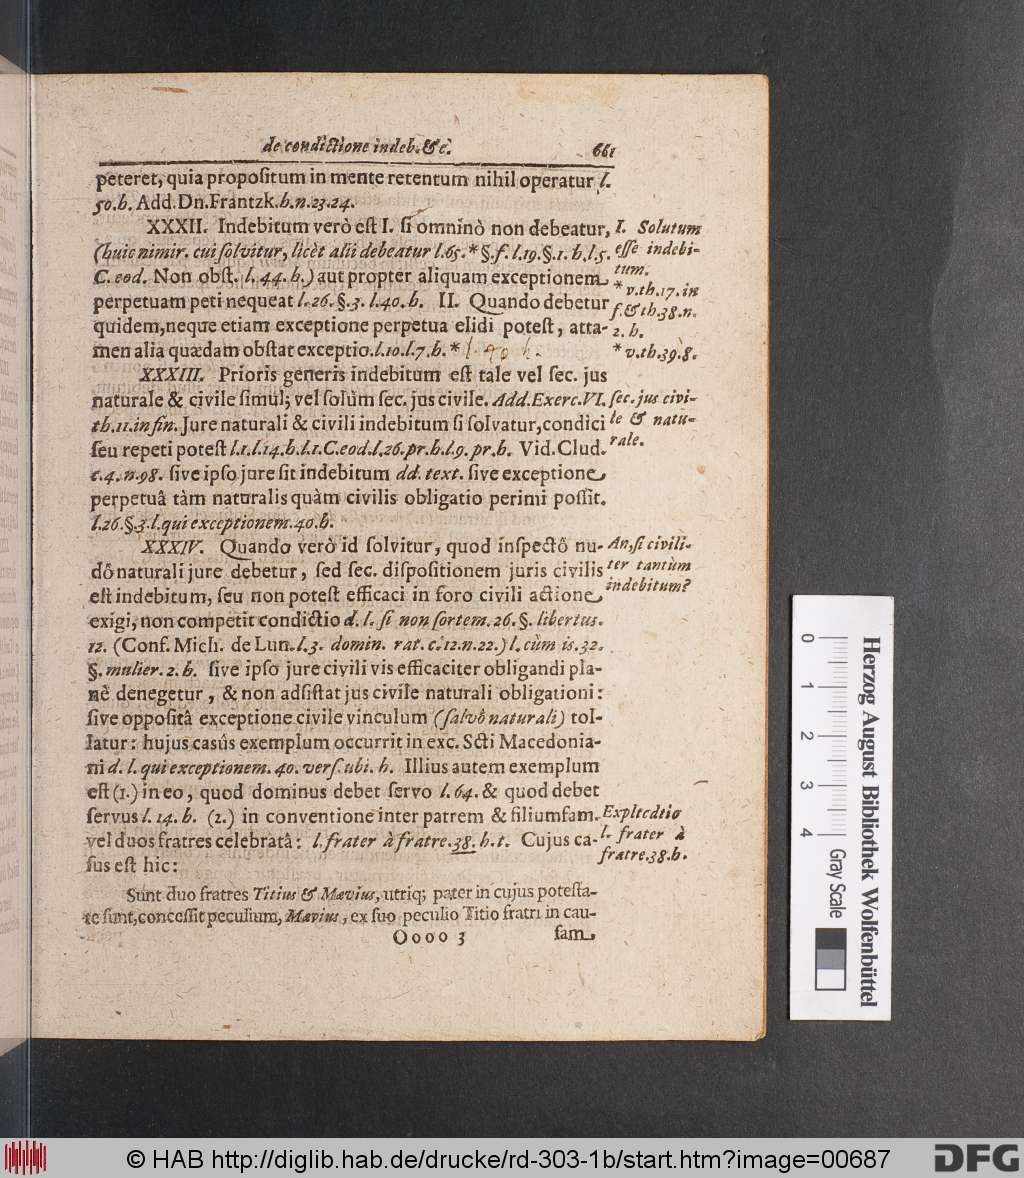 de condictione indeb. &c. 661
peteret, quia propositum in mente retentum nihil operatur l.
50. h. Add. Dn. Frantzk. h. n. 23. 24.
XXXII. Indebitum verò est I. si omninò non debeatur,
(huic nimir. cui solvitur, licèt alii debeatur l. 65. * §. f. l. 19. §. 1. h. l. 5.
C. eod. Non obst. l. 44. h.) aut propter aliquam exceptionem
perpetuam peti nequeat l. 26. §. 3. l. 40. h. II. Quando debetur
quidem, neque etiam exceptione perpetua elidi potest, atta-
men alia quædam obstat exceptio. l. 10. l. 7. h. * l. 40 h.
I. Solutum
esse indebi-
tum.
* v. th. 17. in
f. & th. 38. n.
2. h.
* v. th. 39. 8.
XXXIII. Prioris generis indebitum est tale vel sec. jus
naturale & civile simul; vel solùm sec. jus civile. Add. Exerc. VI.
th. 11. in fin. Jure naturali & civili indebitum si solvatur, condici
seu repeti potest l. 1. l. 14. h. l. 1. C. eod. l. 26. pr. h. l. 9. pr. h. Vid. Clud.
c. 4. n. 98. sive ipso jure sit indebitum dd. text. sive exceptione
perpetuâ tàm naturalis quàm civilis obligatio perimi possit.
l. 26. §. 3. l. qui exceptionem. 40. h.
sec. jus civi-
le & natu-
rale.
XXXIV. Quando verò id solvitur, quod inspectô nu-
dô naturali jure debetur, sed sec. dispositionem juris civilis
est indebitum, seu non potest efficaci in foro civili actione
exigi, non competit condictio d. l. si non sortem. 26. §. libertus.
12. (Conf. Mich. de Lun. l. 3. domin. rat. c. 12. n. 22.) l. cùm is. 32.
§. mulier. 2. h. sive ipso jure civili vis efficaciter obligandi pla-
nè denegetur, & non adsistat jus civile naturali obligationi:
sive oppositâ exceptione civile vinculum (salvô naturali) tol-
latur: hujus casûs exemplum occurrit in exc. Scti Macedonia-
ni d. l. qui exceptionem. 40. vers. ubi. h. Illius autem exemplum
est (1.) in eo, quod dominus debet servo l. 64. & quod debet
servus l. 14. h. (2.) in conventione inter patrem & filiumfam.
vel duos fratres celebratâ: l. frater à fratre. 38. h. t. Cujus ca-
sus est hic:
An, si civili-
ter tantùm
indebitum?
Explicatio
l. frater à
fratre. 38. h.
Sunt duo fratres Titius & Mævius, utriq; pater in cujus potesta-
te sunt, concessit peculium, Mævius, ex suo peculio Titio fratri in cau-
Oooo 3 sam
0 1 2 3 4
Herzog August Bibliothek Wolfenbüttel
Gray Scale
© HAB http://diglib.hab.de/drucke/rd-303-1b/start.htm?image=00687
DFG